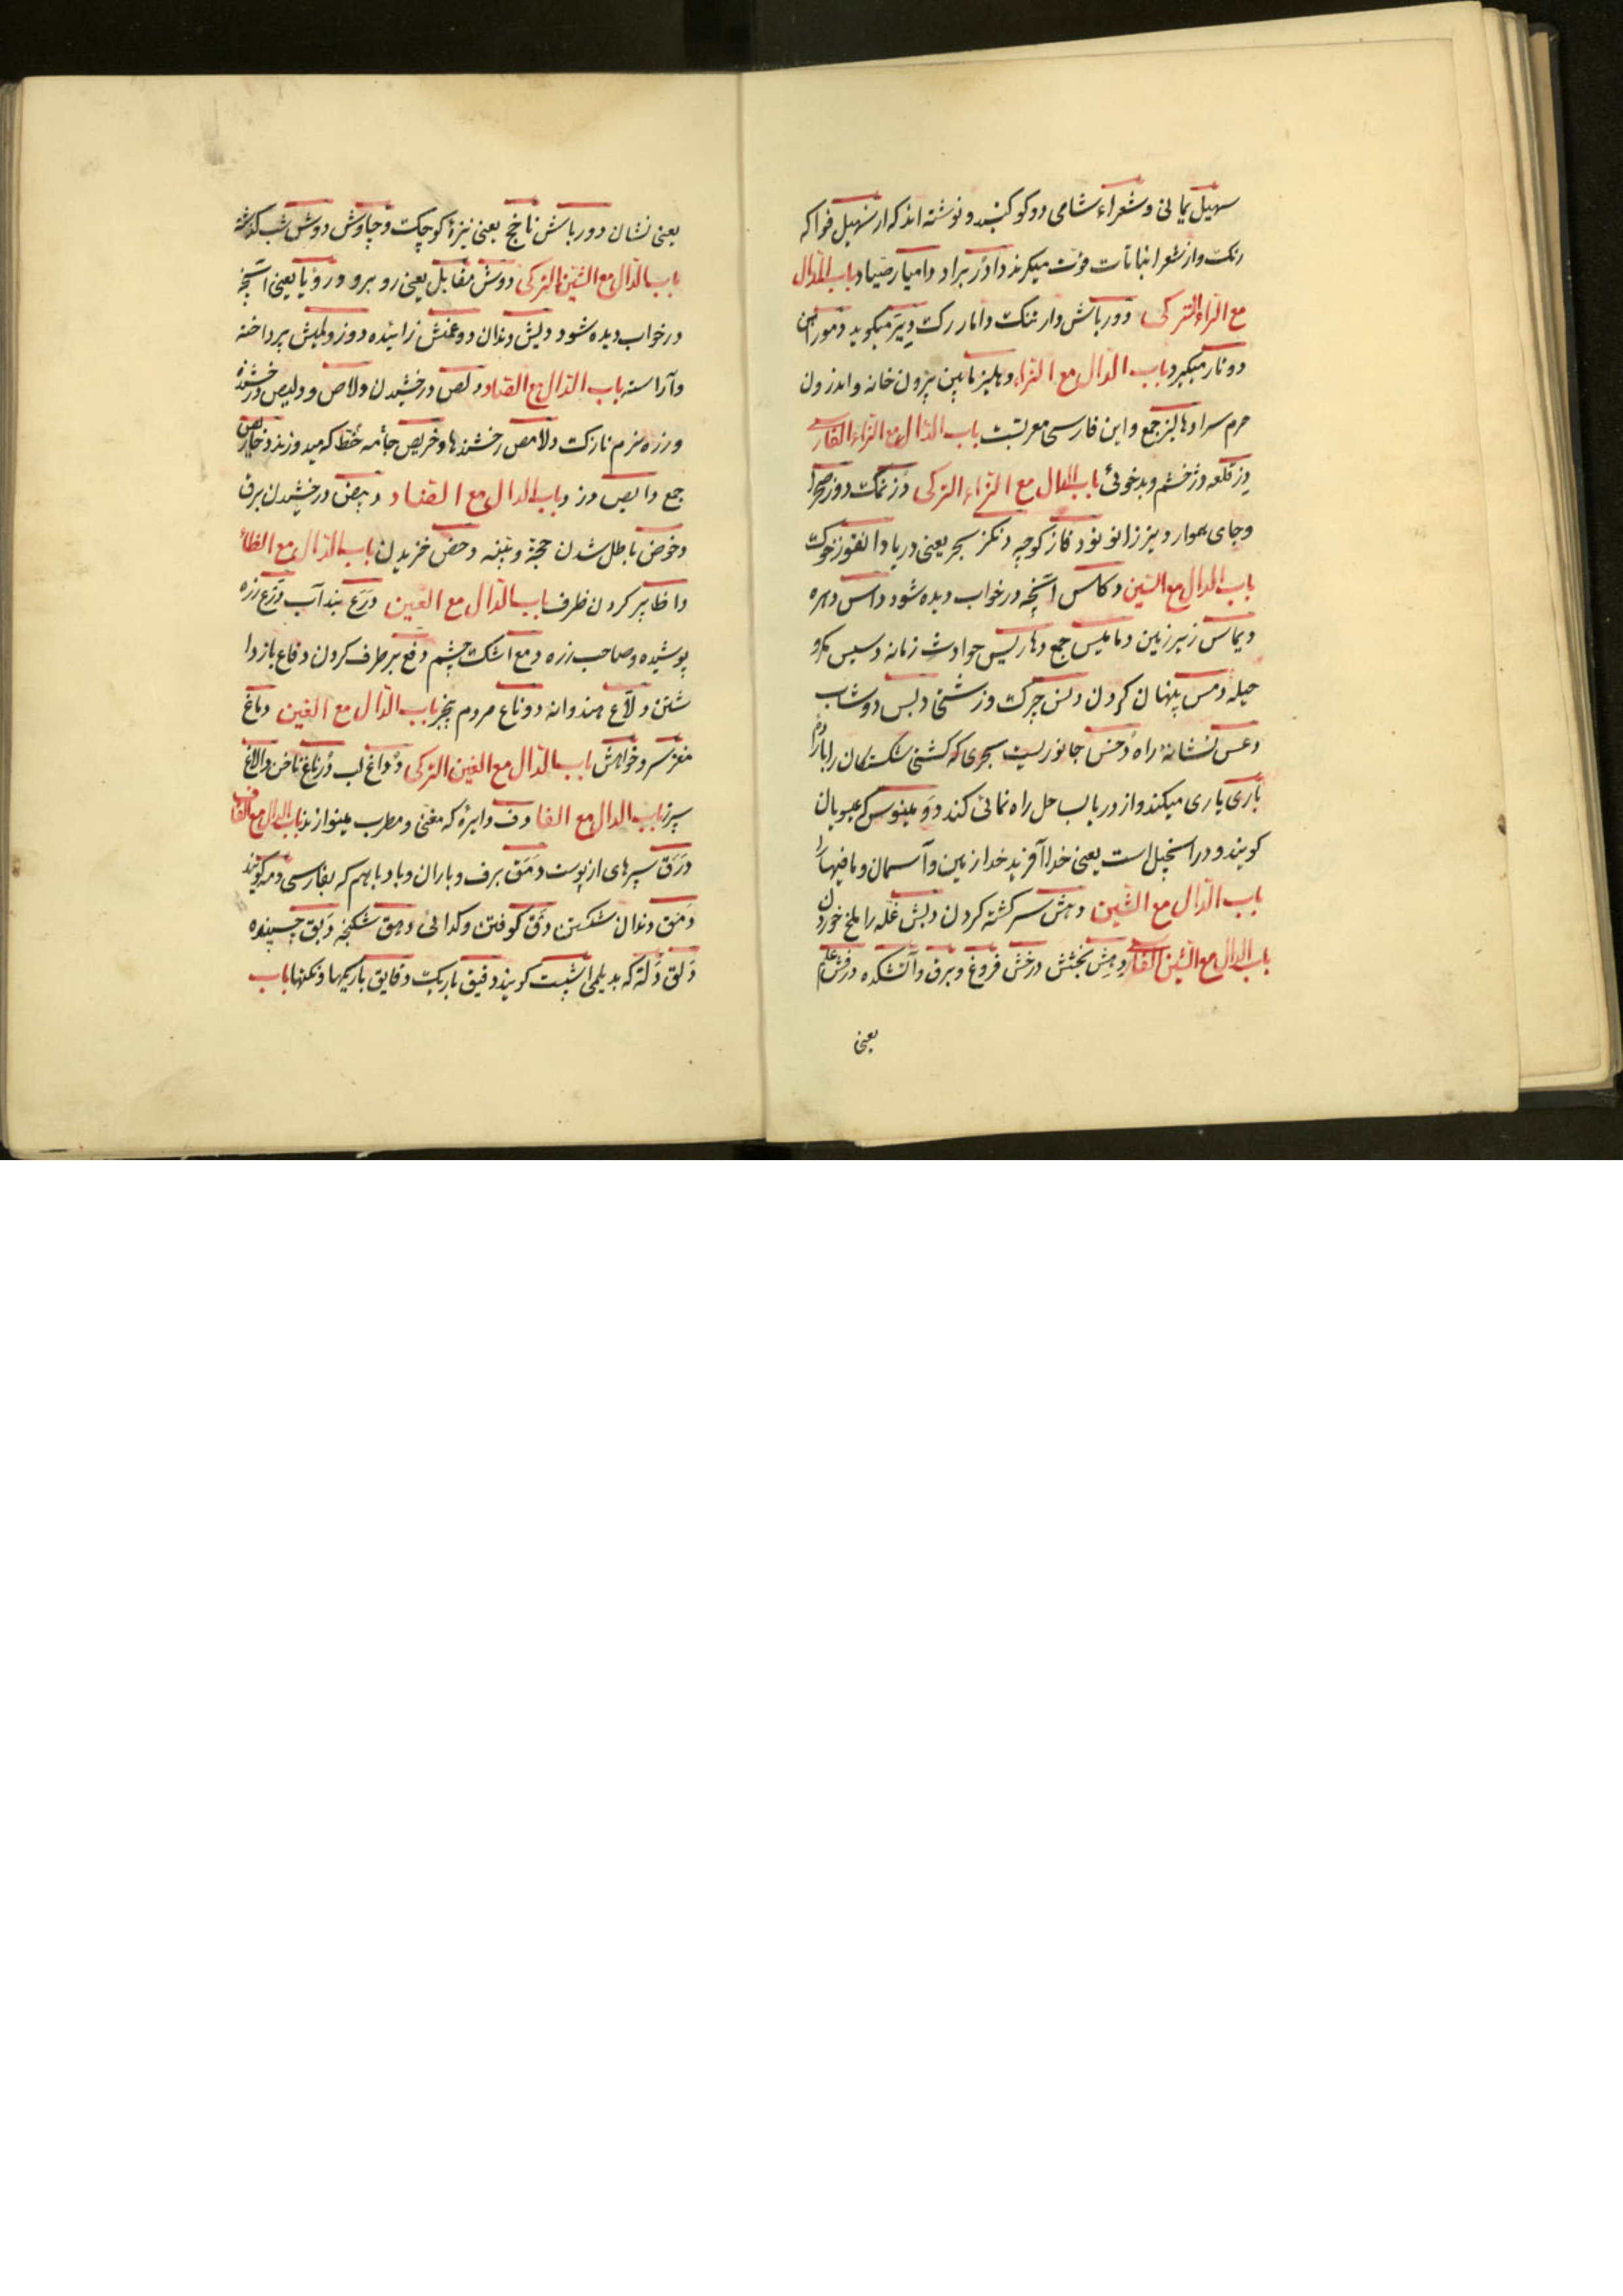 سهیل یمانی و شعراء شامی دو کوکبند و نوشته اند که از سهیل فواکه
رنک و از شعرا نباتات قوت میکرند دادر برادر دامیار صیاد باب الدال
مع الراء الترکی دور باش دار تنک دامار رک دیتر میکوید دموراهن
دونار میکیرد باب الدال مع الزاء دهلیز مابین بیرون خانه و اندرون
حرم سرا دهالیز جمع و این فارسی معربست باب الدال مع الزاء الفارسی
دز قلعه دژ خشم و بدخوئی باب الدال مع الزاء الترکی دُز نمک دوز صحرا
و جای هموار دیز زانو نودقاز کوچه دنکز بحر یعنی دریا دانقوز خوک
باب الدال مع السین دکاس آنچه در خواب دیده شود داس دهره
دیماس زیر زمین دمامیس جمع دهاریس حوادث زمانه دسیس مکر و
حیله دمس پنهان کردن دنس چرک و زشتی دبس دوشاب
دعس نشانهٔ راه دُخس جانوریست بحری که کشتی شکستکان را بار دوم
یاری میکند و از دریا بساحل راه نمائی کند دومینوس عیسویان
کویند و در انجیل است یعنی خدا آفرید خدا زمین و آسمان و مافیها را
باب الدال مع الشین دهش سرکشته کردن دبش غله را ملخ خوردن
باب الدال مع الشین الفارسی دهش بخشش درخش فروغ و برق و آتشکده درفش علم
یعنی
یعنی نشان دور باش ناخج یعنی نیزهٔ کوچک و چاوش دوش شب کذشته
باب الدال مع الشین الترکی دوش مقابل یعنی روبرو و رؤیا یعنی آنچه
در خواب دیده شود دیش دندان دوغمش زائیده دوزولمش پرداخته
و آراسته باب الدال مع الصاد دلص درخشیدن دلاص و دلیص درخشنده
و زره نرم نازک دلامص رخشندها دخریص جامه خط که میدوزند دخارص
جمع دایص دزد باب الدال مع الضاد دبیض درخشیدن برق
دخوض باطل شدن حجة و بینه دحض خزیدن باب الدال مع الظاء
داظ پر کردن ظرف باب الدال مع العین درع بند آب درع زره
پوشیده و صاحب زره دمع اشک چشم دفع برطرف کردن دفاع بازدا
شتن دلاع هندوانه دوناع مردم بیخبر باب الدال مع الغین دماغ
مغز سر و خواهش باب الدال مع الغین الترکی دُداغ لب درناغ ناخن دالاغ
سپرز باب الدال مع الفا دف دایره که مغنی و مطرب مینوازند باب الدال مع القاف
درق سپرهای از پوست دمق برف و باران و باد با هم که بفارسی دمه کویند
دمق دندان شکستن دق کوفتن و کدائی دهق شکنجه دبق چسبنده
دلق دله که بدیلمی اشپت کویند دقیق باریک دقایق باریکها و نکتها باب